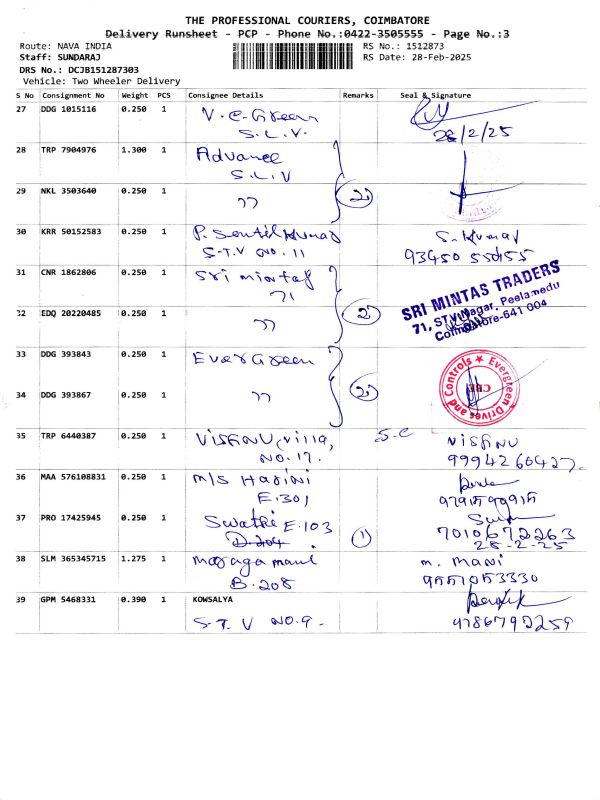 THE PROFESSIONAL COURIERS, COIMBATORE
Delivery Runsheet - PCP - Phone No.:0422-3505555 - Page No.:3
Route: NAVA INDIA
RS No.: 1512873
Staff: SUNDARAJ
RS Date: 28-Feb-2025
DRS No.: DCJB151287303
Vehicle: Two Wheeler Delivery
S No Consignment No Weight PCS Consignee Details Remarks Seal & Signature
27 DDG 1015116 0.250 1 V.C-Green
S.L.V. 28/2/25
28 TRP 7904976 1.300 1 Advance
S.L.V
29 NKL 3503640 0.250 1 ,, 2
30 KRR 50152583 0.250 1 P. Sentil Kumar S. Kumar
S-T.V NO. 11 93450 55055
31 CNR 1862806 0.250 1 Sri mintas
71
SRI MINTAS TRADERS
71, STV Nagar, Peelamedu
Coimbatore-641 004
32 EDQ 20220485 0.250 1 ,, 2
33 DDG 393843 0.250 1 EverGreen
Evergreen Drives and Controls
CBE
34 DDG 393867 0.250 1 ,, 2
35 TRP 6440387 0.250 1 VISHNU villa, S.C VISHNU
NO.17. 9994260427
36 MAA 576108831 0.250 1 M/S Harini
E.301 9791590915
37 PRO 17425945 0.250 1 Swathi E.103 7010672263
D.204 1 28-2-25
38 SLM 365345715 1.275 1 m. Mani
B.208 9551053330
39 GPM 5468331 0.390 1 KOWSALYA
S.T.V NO.9. 9786792259